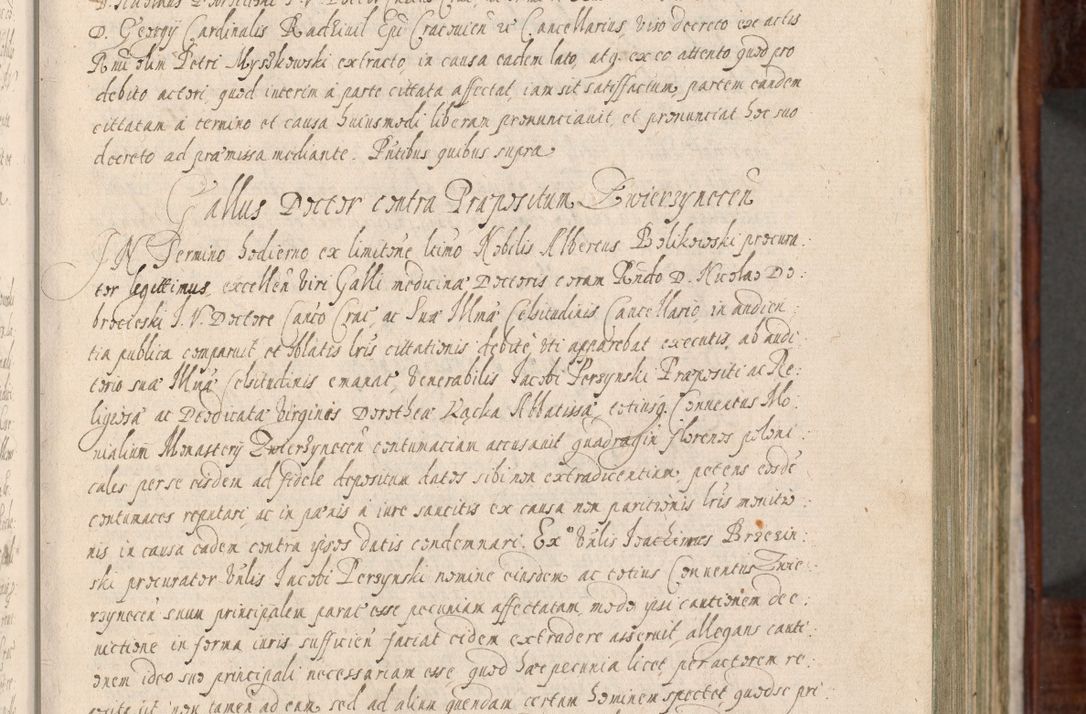 D. Georgÿ Cardinalis Radziuil Epi Cracouien ac Cancellarius, viso decreto ex actis
Rmi olim Petri Myszkowski extracto, in causa eadem lato, atq. ex eo attento quod pro
debito actori, quod interim à parte cittata affectat, iam sit satisfactum, partem eandem
cittatam à termino et causa huiusmodi liberam pronunciauit, et pronunciat hoc suo
decreto ad præmissa mediante. Pntibus quibus supra
Gallus Doctor contra Præpositum Zwiersyneceñ
IN Termino hodierno ex limitõne ltimo Nobilis Albertus Bolikowski procura:
tor legittimus, excelleñ viri Galli medicinæ Doctoris coram Rndo D. Nicolao Do:
brocieski I. V. Doctore Canco Crac, ac Suæ Illmæ Celsitudinis Cancellario, in audien:
tia publica comparuit, et oblatis lris cittationis debitè, vti apparebat executis, ab audi:
torio suæ Illmæ Celsitudinis emanat, Venerabilis Iacobi Perzynski Præpositi ac Re:
ligiosæ ac Deodicatæ Virginis Dorotheæ Kącka Abbatissæ, totiusq. Conuentus Mo:
nialium Monasterÿ Zwierzyneceñ contumaciam accusauit quadragin florenos poloni:
cales per se eisdem ad fidele depositum datos sibi non extradicentium, petens eosdẽ
contumaces reputari, ac in pænis à iure sancitis ex causa non paritionis lris monitio:
nis in causa eadem contra ipsos datis condemnari. Exo Vnlis Ioachimus Brzezin:
ski procurator Vnlis Iacobi Perzynski nomine eiusdem ac totius Conuentus Zwie:
rzyneceñ suum principalem parat esse pecuniam affectatam, modo ipsi cautionem de e:
uictione in forma iuris sufficieñ faciat eidem extradere asseruit, allegans cauti:
onem ideo suo principali necessariam esse, quod hæc pecunia licet per actorem re:
non tamen ad eum, sed ad alium quendam certum hominem spectet, quodse pri: